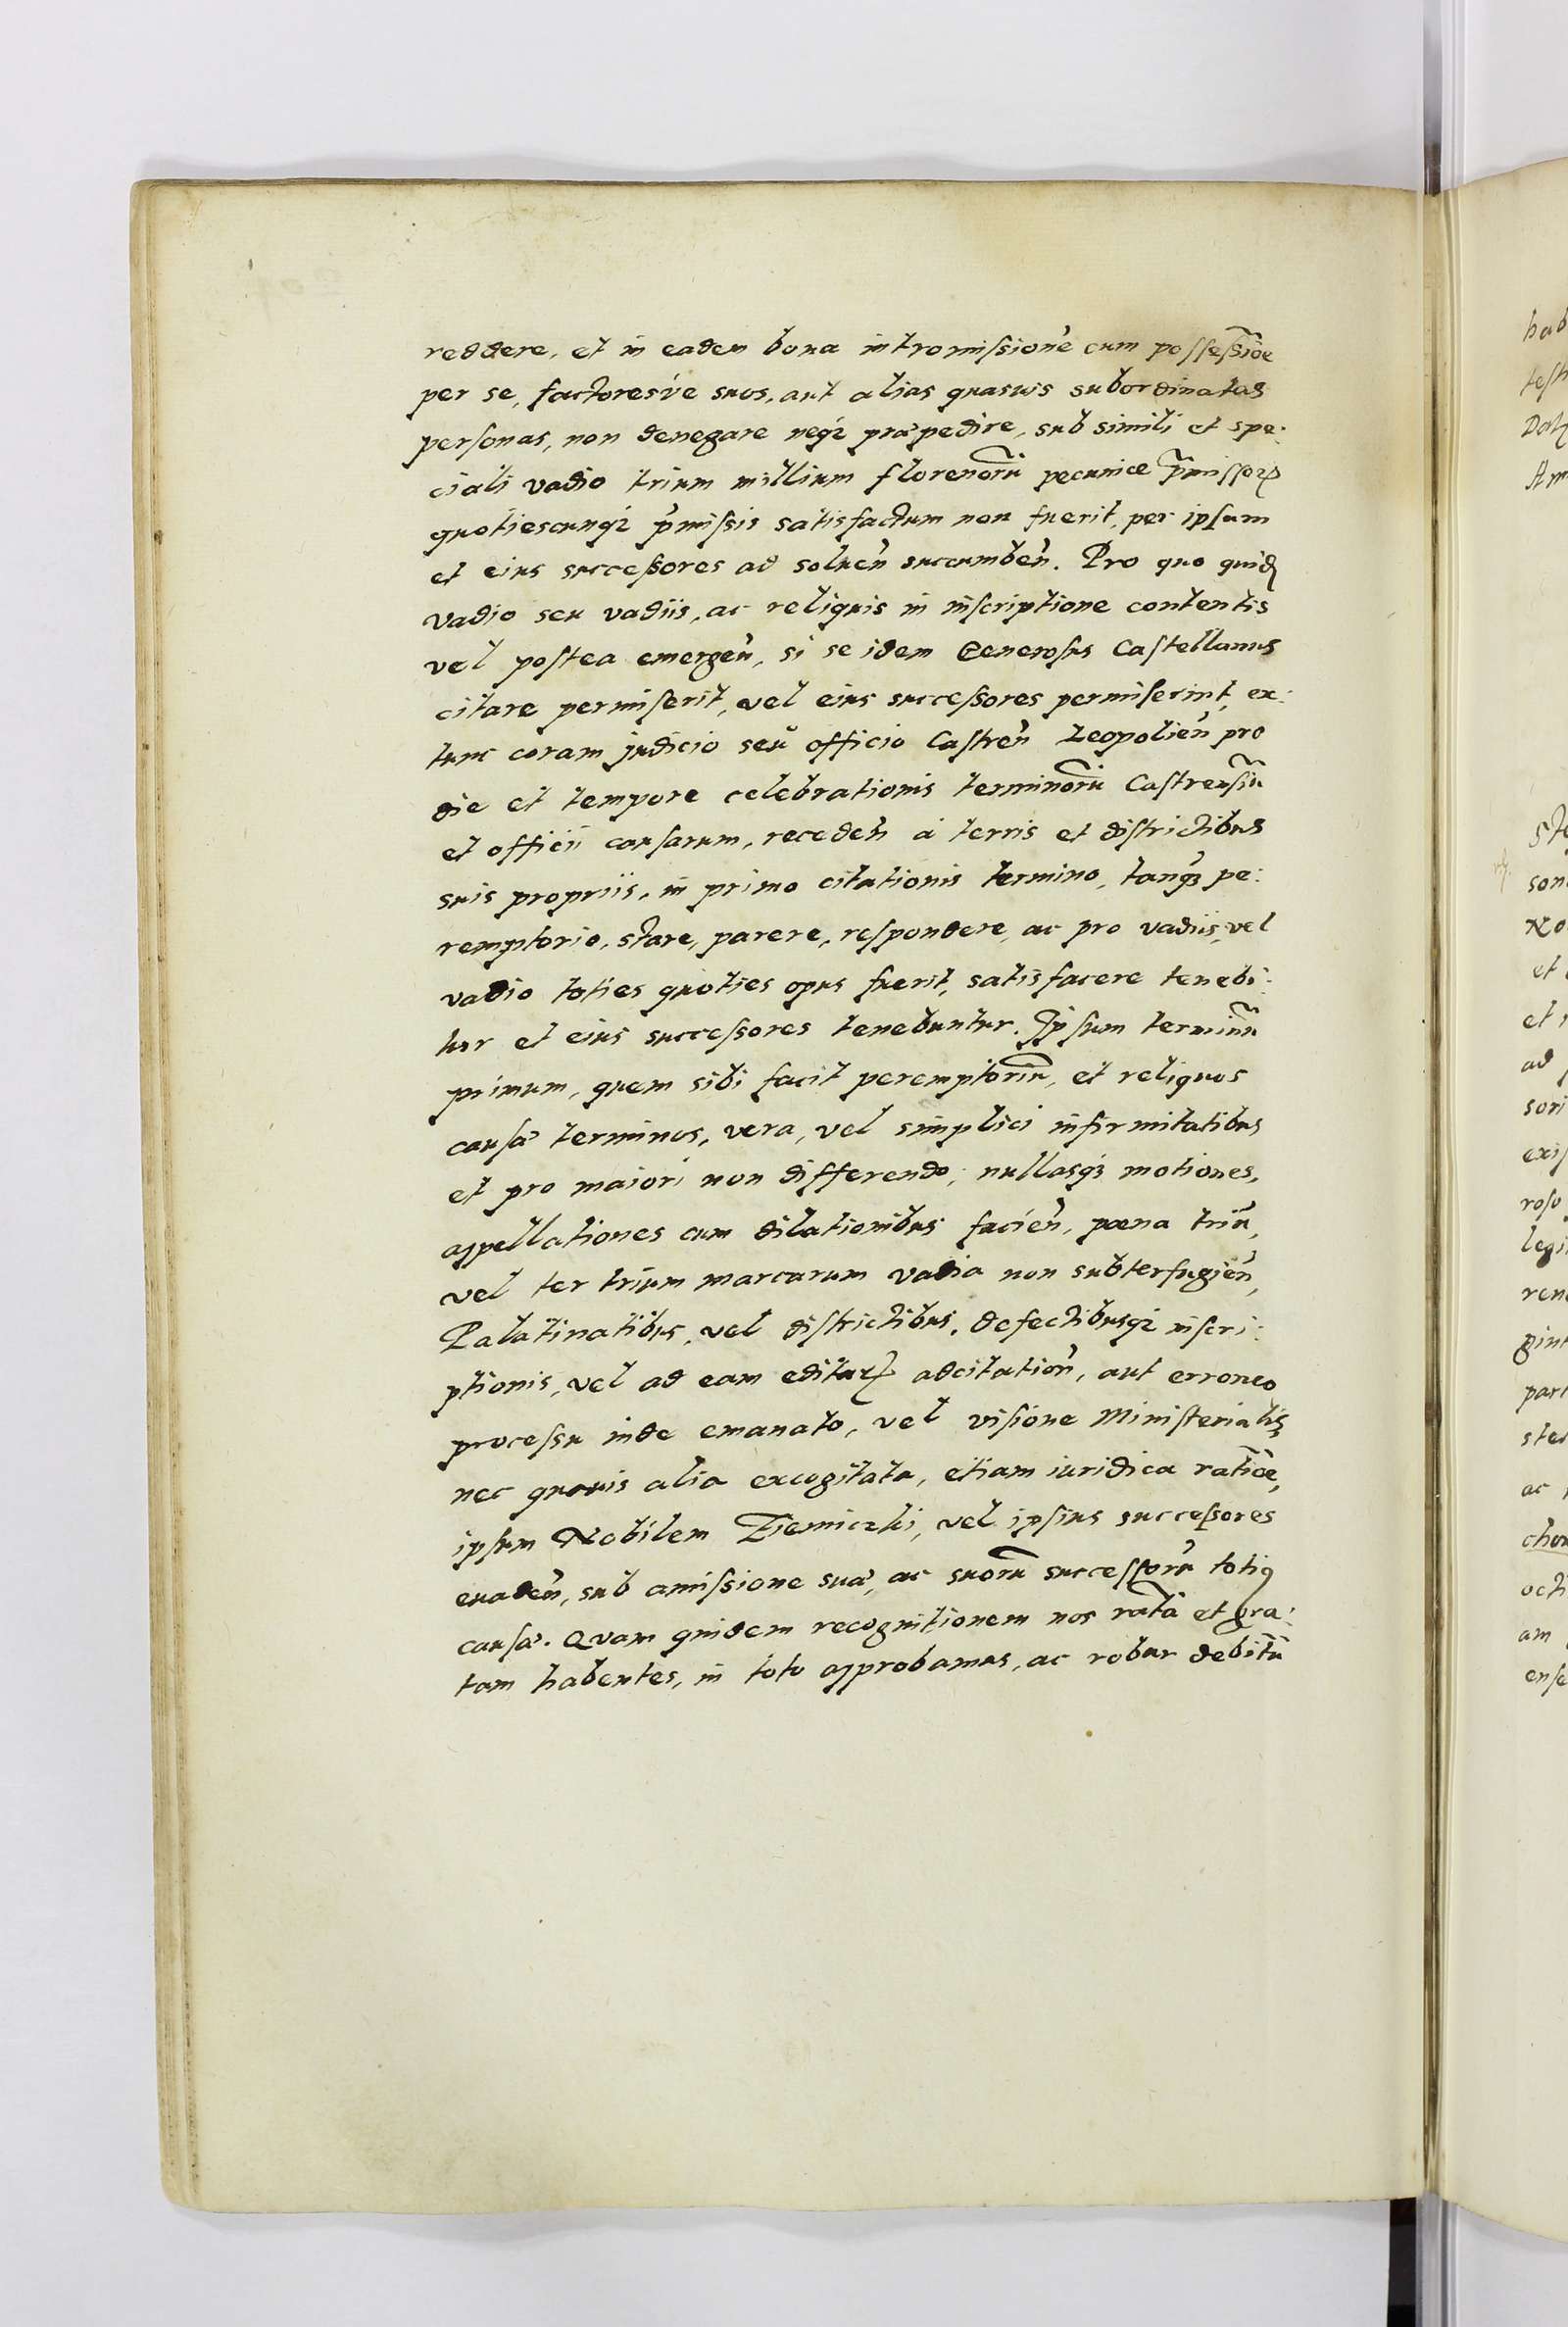 reddere, et in eadem bona intromiſsionē cum poſseſsiōe
per se, factoresúe suos, aut alias quasuis subordinatas
perſonas, non denegare neqꝫ præpedire, sub simili et spe:
ciali vadio trium millium florenorū pecuniæ p̄miſſoꝝ
quotiescunqꝫ p̄miſsis satisfactum non fuerit, per ipſum
et eius succeſsores ad soluen̄ succumben̄. Pro quo quidē
vadio seu vadiis, ac reliquis in inſcriptione contentis
vel poſtea emergen̄, si se idem Generosus Caſtellanus
citare permiſerit, vel eius succeſsores permiſerint, ex:
tunc coram judicio seu officio Caſtren̄ Leopolien̄ pro
die et tempore celebrationis terminorū Caſtrenſiū
et officii cauſarum, receden̄ à terris et diſtrictibus
suis propriis, in primo citationis termino, tanqꝫ pe:
remptorio, stare, parere, reſpondere, ac pro vadiis, vel
vadio toties quoties opus fuerit, satisfacere tenebi:
tur et eius succeſsores tenebuntur. Ipſum terminū
primum, quem sibi facit peremptoriū, et reliquos
cauſæ terminos, vera, vel simplici infirmitatibus
et pro maiori non differendo, nullasqꝫ motiones,
appellationes cum dilationibus facien̄, pœna triū,
vel ter trium marcarum vadia non subterfugien̄,
Palatinatibus, vel diſtrictibus, defectibusqꝫ inſcri:
ptionis, vel ad eam editaꝝ adcitation̄, aut erroneo
proceſsu inde emanato, vel viſione Miniſterialis,
nec quouis alia excogitata, etiam iuridica ratiōe,
ipſum Nobilem Ziemiczki, vel ipſius succeſsores
euaden̄, sub amiſsione suæ, ac suorū succeſſorū totiꝯ
cauſæ. Quam quidem recognitionem nos ratā et gra:
tam habentes, in toto approbamus, ac robur debitū